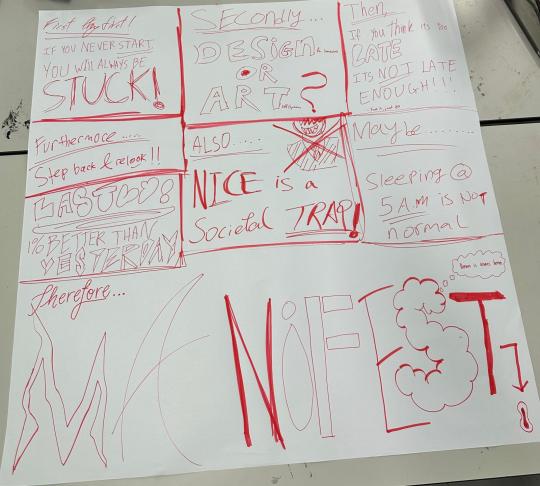 First
IF YOU NEVER START
YOU WILL ALWAYS BE
STUCK!
SECONDLY...
DESIGN
OR
ART?
Then,
If you think its too
LATE
ITS NOT LATE
ENOUGH!!!
Furthermore.....
Step back & relook!!
ALSO.....
NICE is a
Societal TRAP!
Maybe.......
Sleeping @
5AM is NOT
normal
LASTLY!
1% BETTER THAN
YESTERDAY
Therefore...
MANiFEST